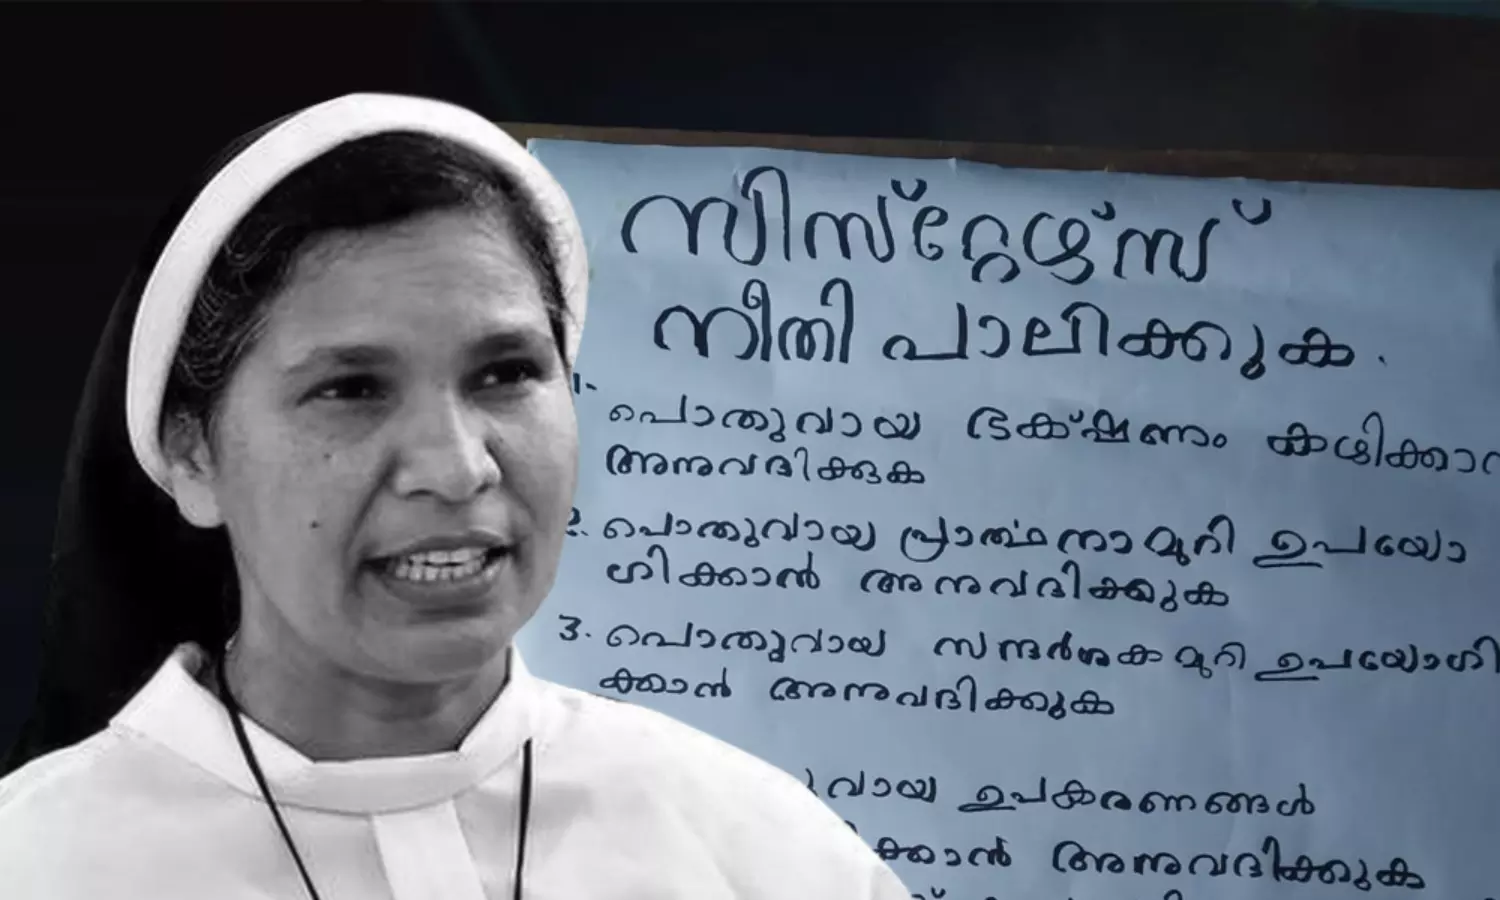 സിസ്റ്റേഴ്സ്
നീതി പാലിക്കുക.
1. പൊതുവായ ഭക്ഷണം കഴിക്കാന
അനുവദിക്കുക
2. പൊതുവായ പ്രാർത്ഥനാമുറി ഉപയോ
ഗിക്കാൻ അനുവദിക്കുക
3. പൊതുവായ സന്ദർശകമുറി ഉപയോഗി
ക്കാൻ അനുവദിക്കുക
വായ ഉപകരണങ്ങൾ
ക്കാൻ അനുവദിക്കുക